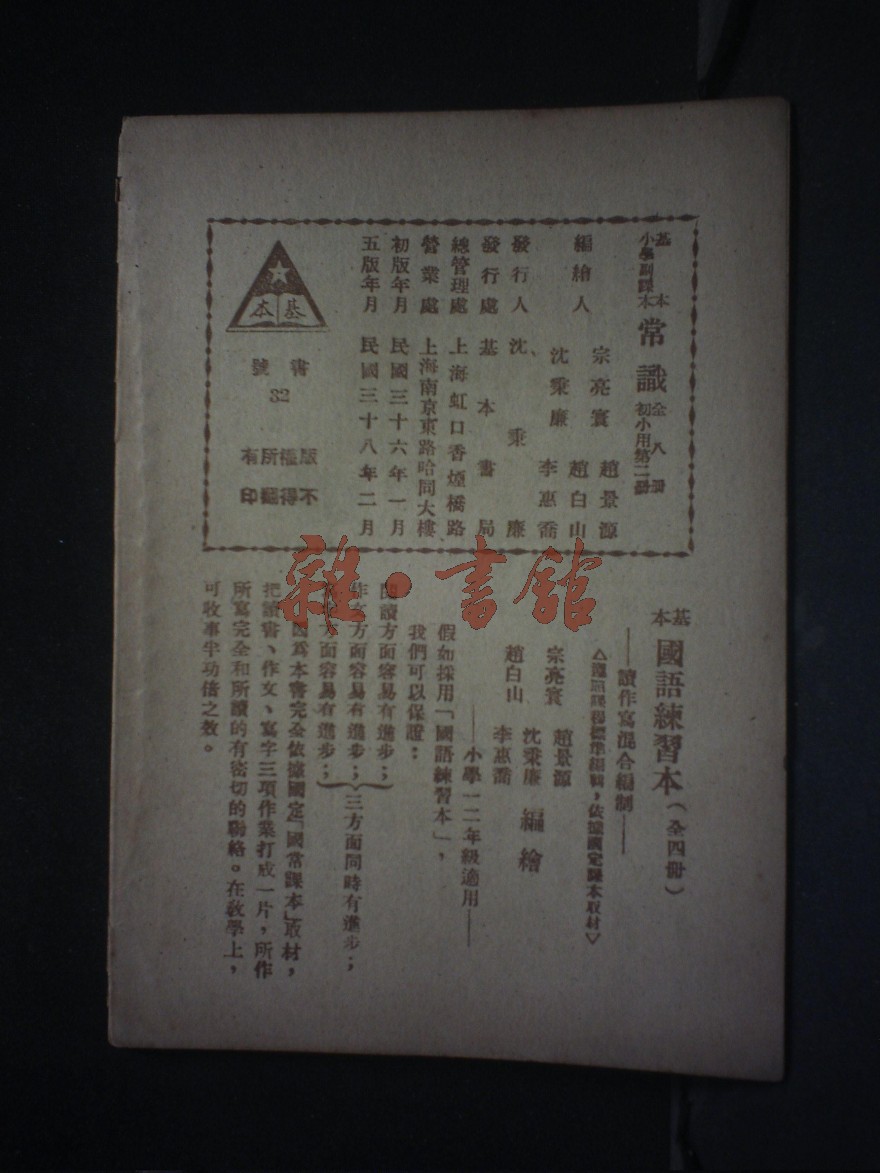 基本
小學副課本
常識
全八冊
初小用第二冊
編繪人
宗亮寰 趙景源
沈秉廉 趙白山
李惠喬
發行人 沈秉廉
發行處 基本書局
總管理處 上海虹口香煙橋路
營業處 上海南京東路哈同大樓
初版年月 民國三十六年一月
五版年月 民國三十八年二月
基本
書號
32
版權所有
不得翻印
基本
國語練習本(全四冊)
——讀作寫混合編制——
課程標準編輯,依據國定課本取材
宗亮寰 趙景源
趙白山 沈秉廉
李惠喬
編繪
——小學一二年級適用——
假如採用「國語練習本」,
我們可以保證:
閱讀方面容易有進步;
作文方面容易有進步;
方面容易有進步;
三方面同時有進步;
因爲本書完全依據國定「國常課本」取材,
把讀書、作文、寫字三項作業打成一片,所作
所寫完全和所讀的有密切的聯絡。在教學上,
可收事半功倍之效。
雜·書館